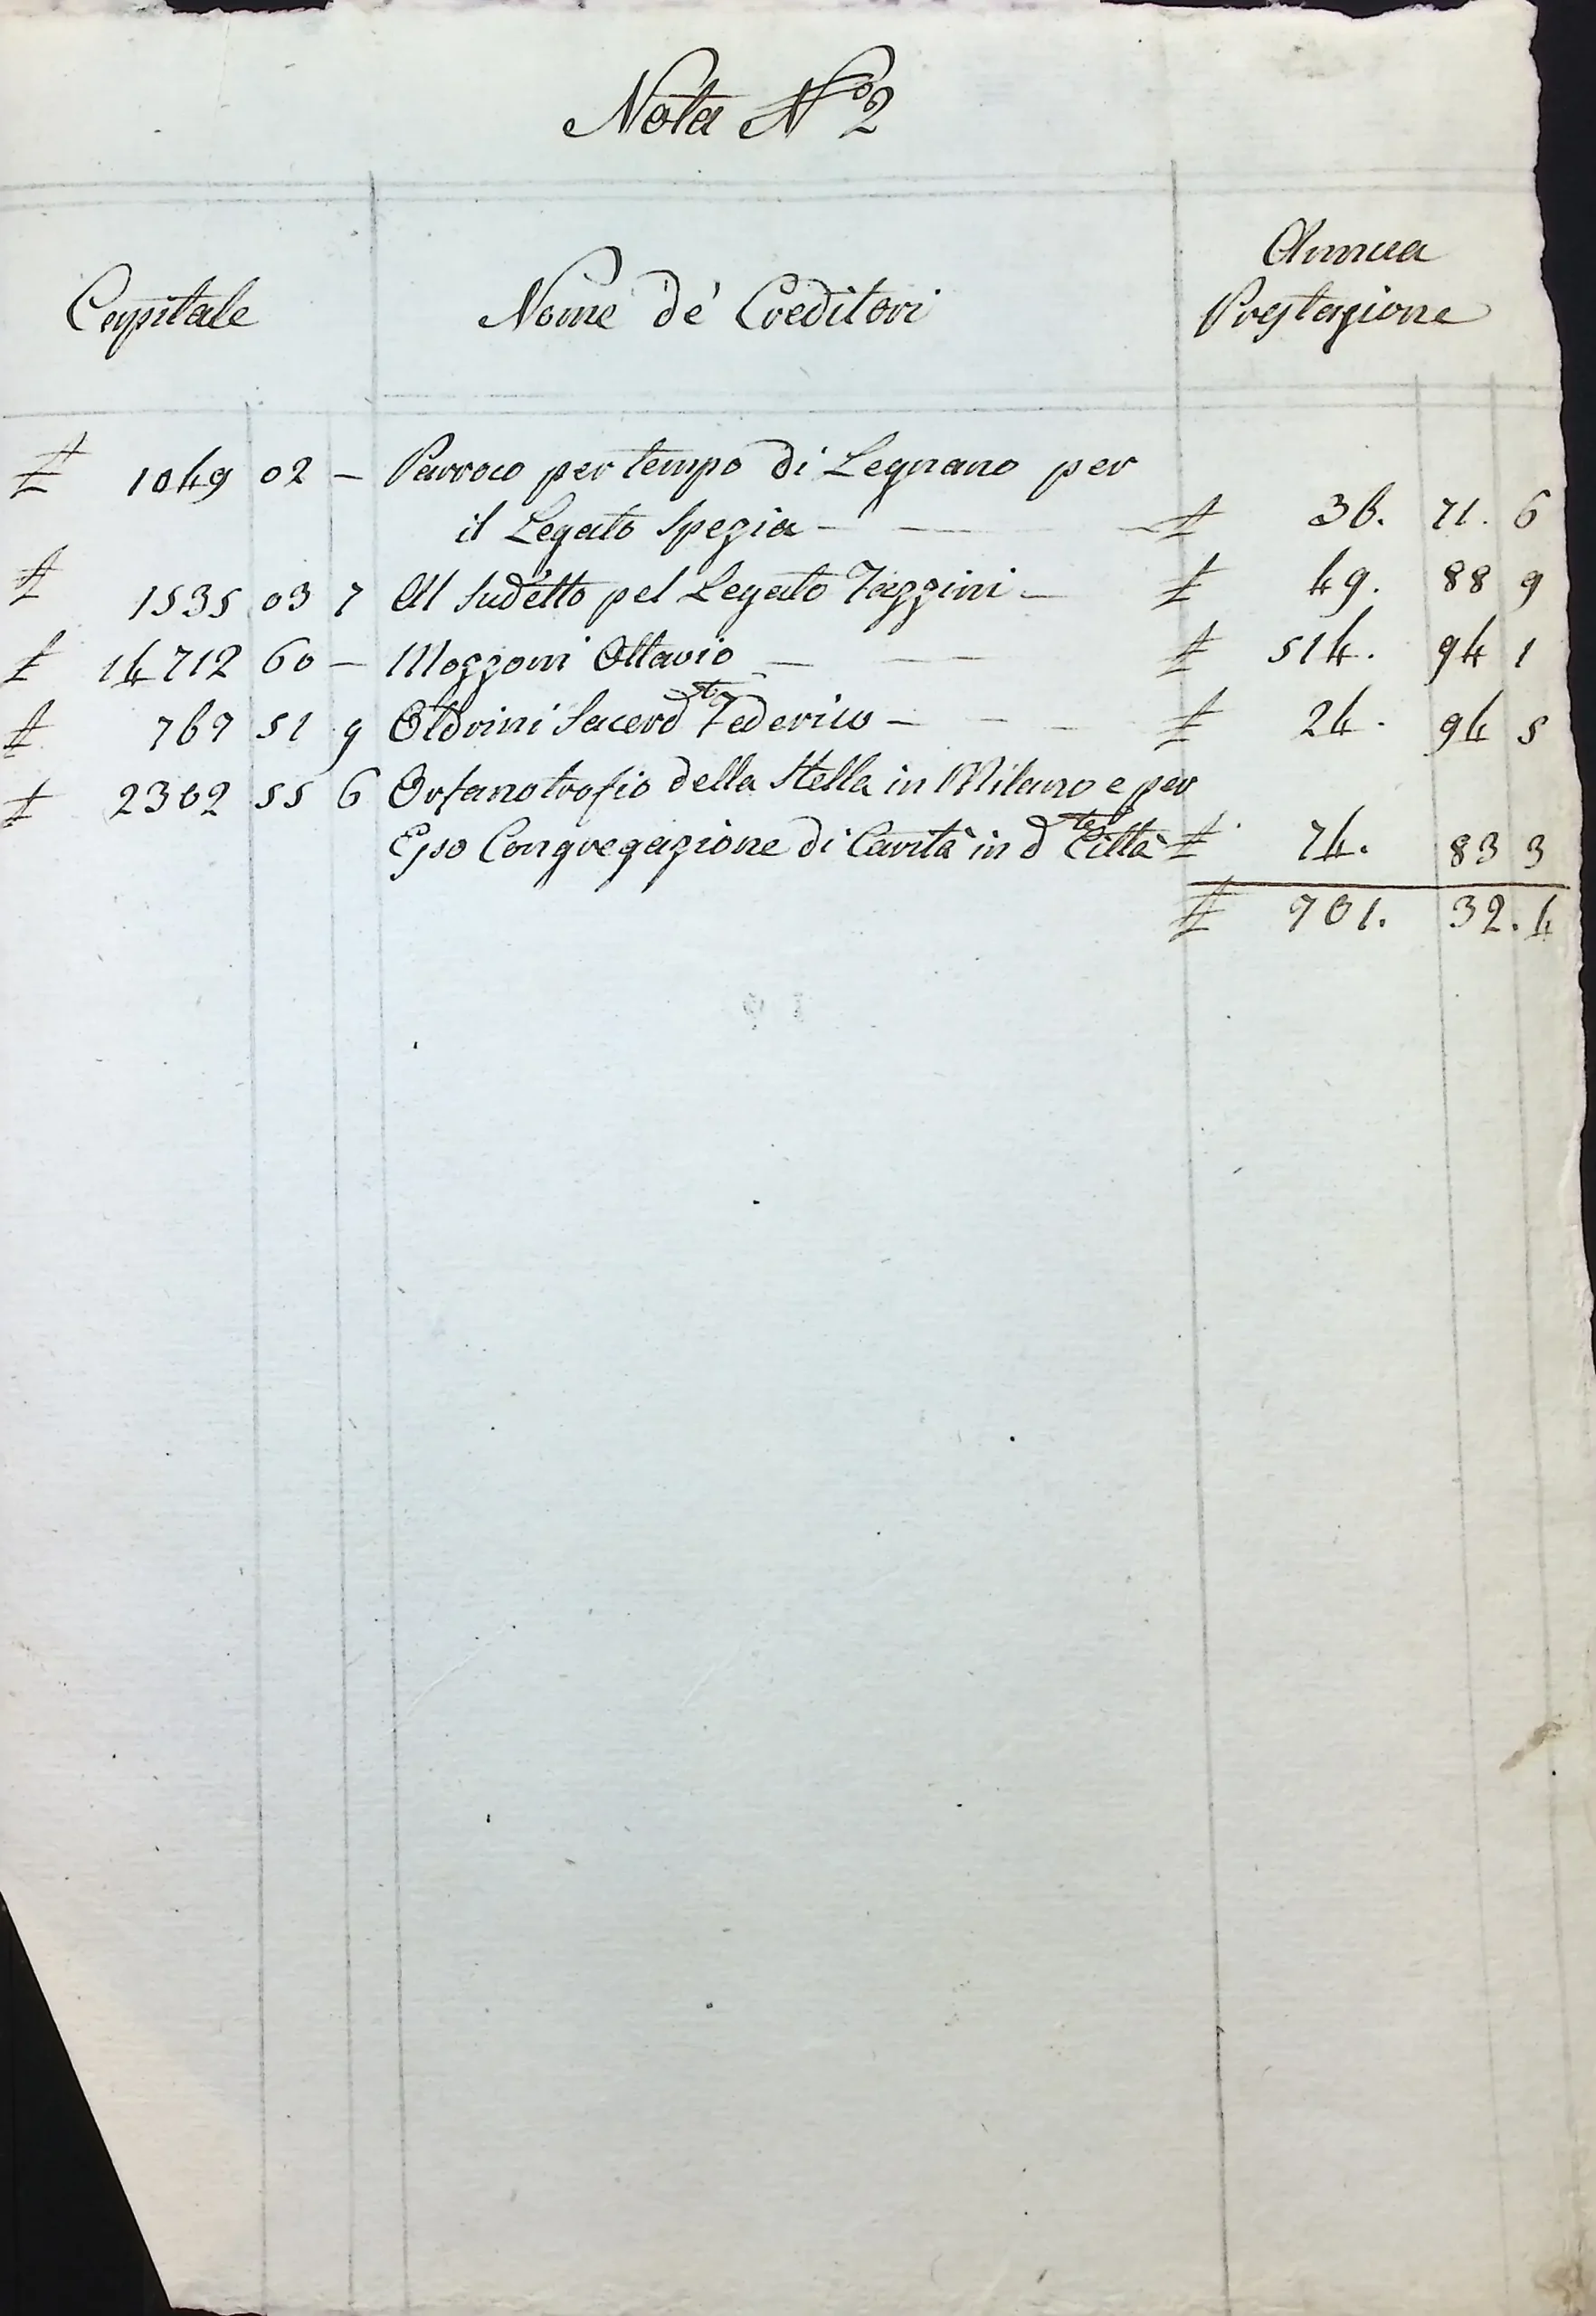 Nota N° 2
Capitale Nome de' Creditori Annua
Prestazione
£ 1049 02 – Parroco per tempo di Legnano per
il Legato Spezia – £ 36. 71. 6
£ 1535 03 7 Al Sudetto pel Legato Tazzini – £ 49. 88 9
£ 14712 60 – Mozzoni Ottavio – £ 514. 94 1
£ 767 51 9 Oldrini Sacerd.te Federico – £ 24. 94 5
£ 2302 55 6 Orfanotrofio della Stella in Milano e per
Esso Congregazione di Carità in d.ta Città £ 74. 83 3
£ 701. 32. 4